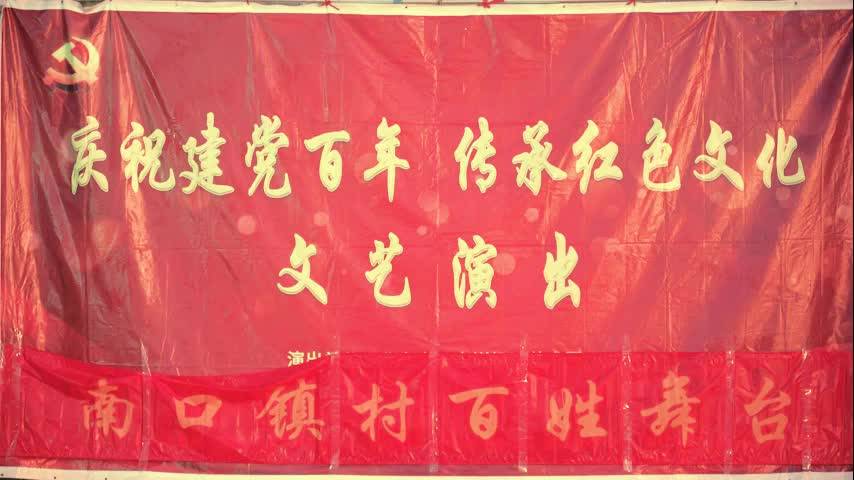 庆祝建党百年 传承红色文化
文艺演出
演出
南口镇村百姓舞台